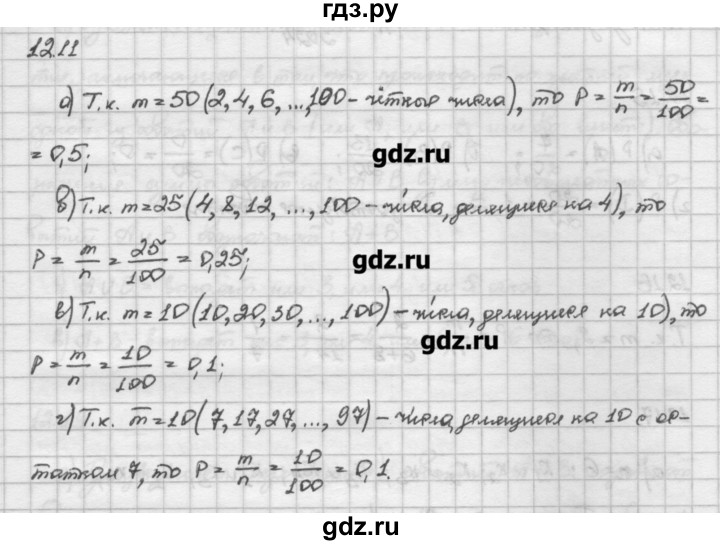 гдз.ру
12.11
а) Т.к. m=50 (2, 4, 6, ..., 100 - чётные числа), то P = m/n = 50/100 =
= 0,5;
gdz.ru
б) Т.к. m=25 (4, 8, 12, ..., 100 - числа, делящиеся на 4), то
P = m/n = 25/100 = 0,25;
gdz.ru
в) Т.к. m=10 (10, 20, 30, ..., 100) - числа, делящиеся на 10), то
gdz.ru
P = m/n = 10/100 = 0,1;
г) Т.к. m=10 (7, 17, 27, ..., 97) - числа, делящиеся на 10 с ос-
татком 7, то P = m/n = 10/100 = 0,1.
gdz.ru